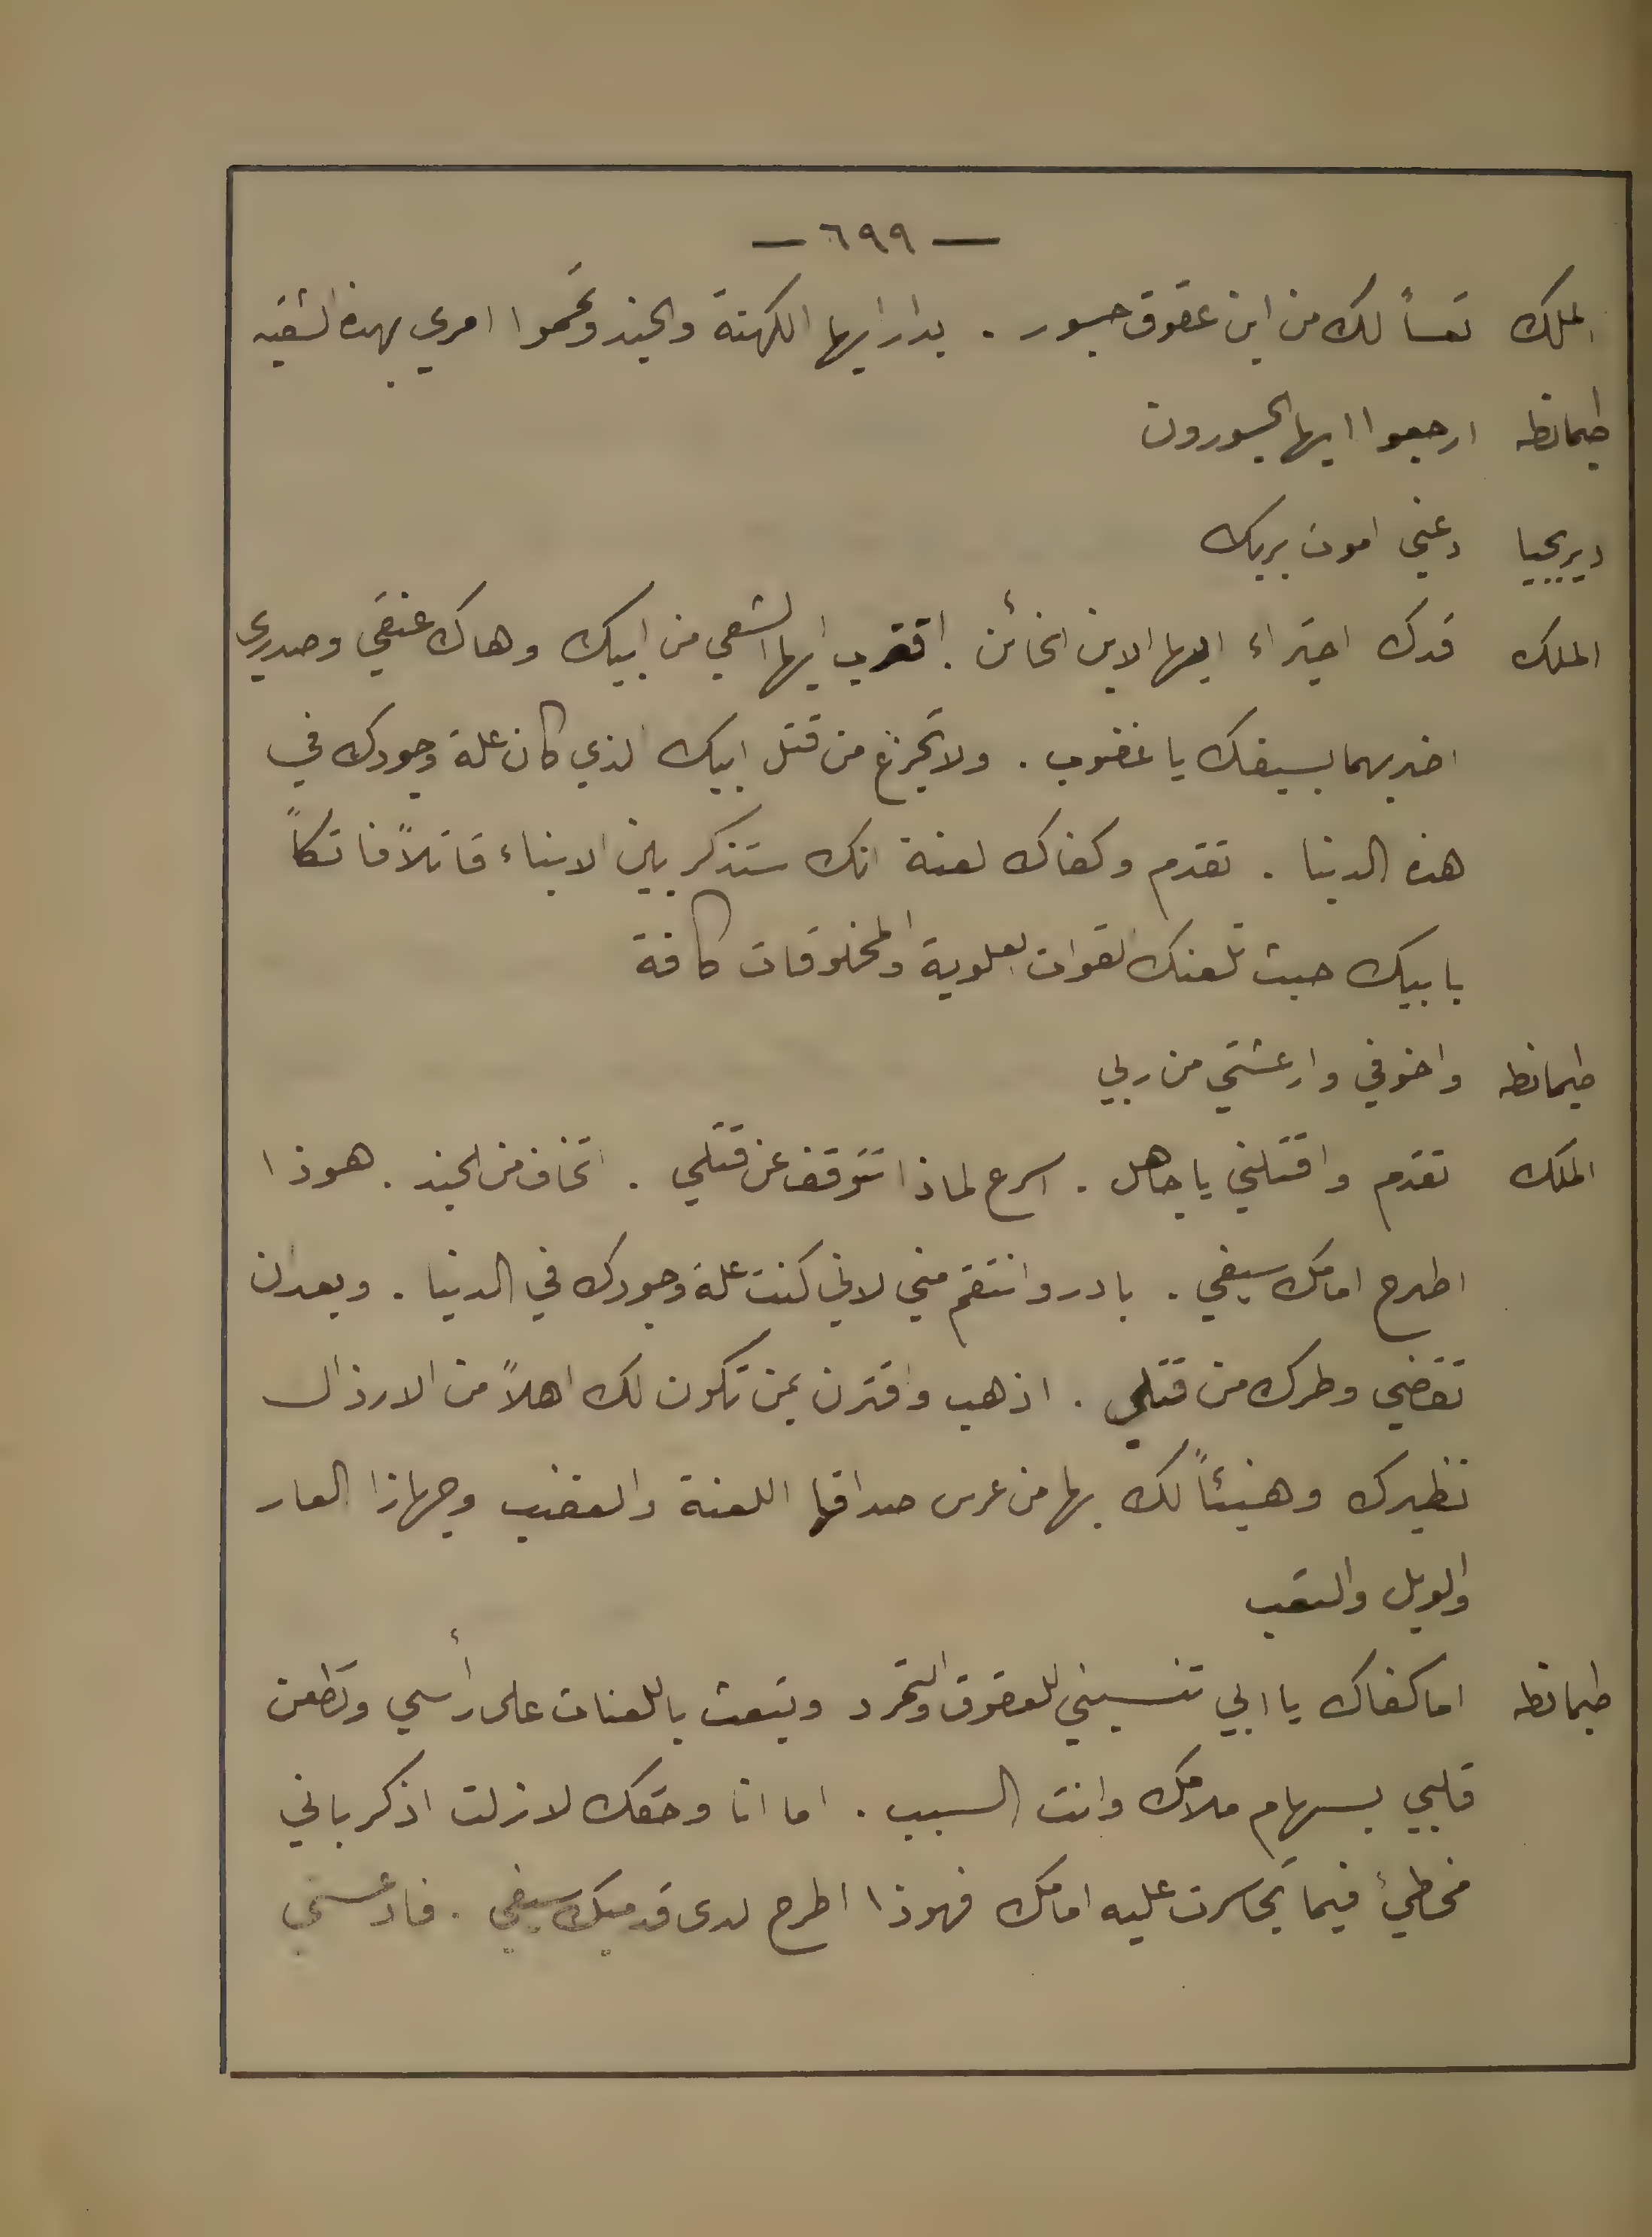 — ٦٩٩ —
الملك تعساً لك من ابن عقوق جسور . بدار ايها الكهنة والجند وتمموا امري بهذه الشقيه
طيمانطه ارجعوا ايها الجسورون
ديريجيا دعني اموت بربك
الملك قدك اجتراء ايها الابن الخائن . اقترب ايها الشقي من ابيك وهاك عنقي وصدري
اضربهما بسيفك يا غضوب . ولا تجزع من قتل ابيك الذي كان علة وجودك في
هذه الدنيا . تقدم وكفاك لعنة انك ستذكر بين الابناء قاتلاً فاتكاً
بابيك حيث تلعنك القوات العلوية والمخلوقات كافة
طيمانطه واخوفي وارعشتي من ربي
الملك تقدم واقتلني يا جاهل . اسرع لماذا تتوقف عن قتلي . اتخاف من الجند . هوذا
اطرح امامك سيفي . بادر وانتقم مني لاني كنت علة وجودك في الدنيا . وبعد ان
تقضي وطرك من قتلي . اذهب واقترن بمن تكون لك اهلاً من الارذال
نظيرك وهنيئاً لك بها من عرس صداقها اللعنة والغضب وجهازا العار
والويل والتعب
طيمانطه اما كفاك يا ابي تنسبني للعقوق والتمرد وتبعث باللعنات على رأسي وتطعن
قلبي بسهام ملامك وانت السبب . اما انا وحقك لا زلت اذكر باني
مخطئ فيما تجاسرت عليه امامك فهوذا اطرح لدى قدميك سيفي .